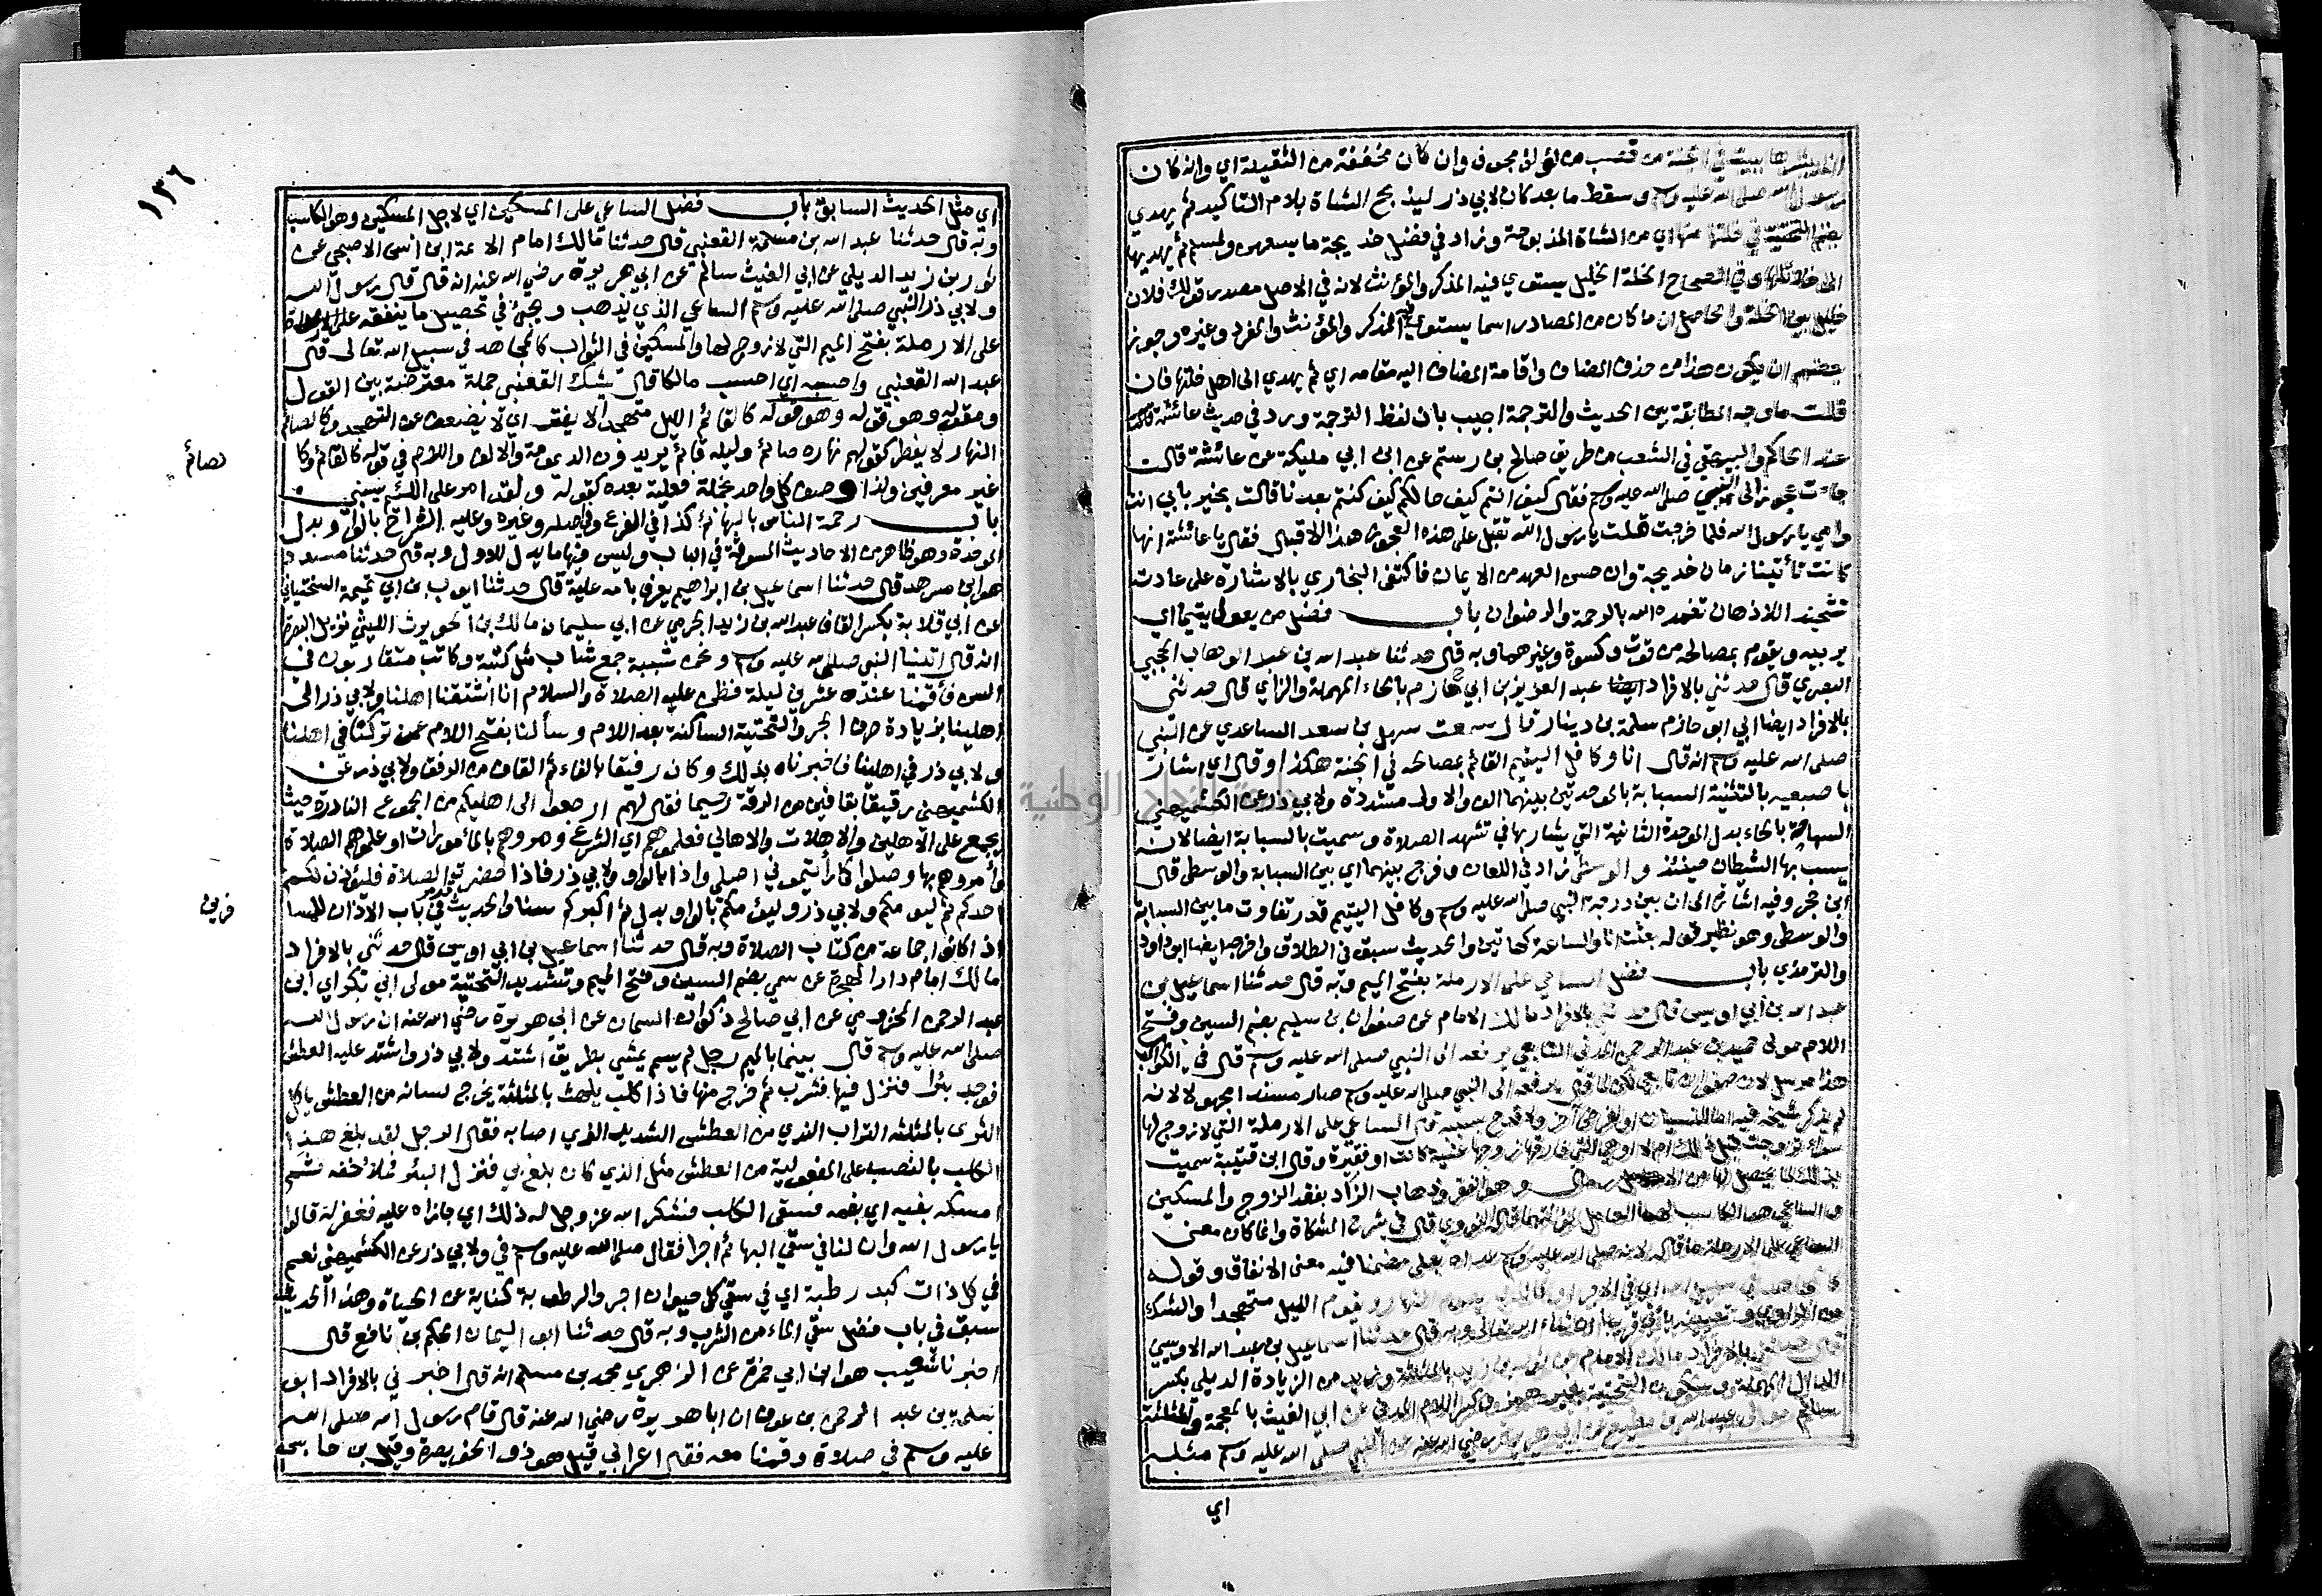 ببيت في الجنة من قصب من لؤلؤ مجوف وان كان مخففة من الثقيلة اي وانه كان
رسول الله صلى الله عليه وسلم وسقط ما بعد كان لابي ذر ليذبح الشاة بلام التاكيد ثم يهدي
بضم التحتية في خلتها منها اي من الشاة المذبوحة وزاد في فضل خديجة ما يسعهن ولمسلم ثم يهديها
الى خلائلها وفي الصحاح الخلة الخليل يستوي فيه المذكر والمؤنث لانه في الاصل مصدر قولك فلان
خليل بين الخلة والحاصل ان ما كان من المصادر اسما يستوي فيه المذكر والمؤنث والمفرد وغيره وجوز
بعضهم ان يكون هذا من حذف المضاف واقامة المضاف اليه مقامه اي ثم يهدي الى اهل خلتها فان
قلت ما وجه المطابقة بين الحديث والترجمة اجيب بان لفظ الترجمة ورد في حديث عائشة
عند الحاكم والبيهقي في الشعب من طريق صالح بن رستم عن ابن ابي مليكة عن عائشة قالت
جاءت عجوز الى النبي صلى الله عليه وسلم فقال كيف انتم كيف حالكم كيف كنتم بعدنا قالت بخير بابي انت
وامي يا رسول الله فلما خرجت قلت يا رسول الله تقبل على هذه العجوز هذا الاقبال فقال يا عائشة انها
كانت تأتينا زمان خديجة وان حسن العهد من الايمان فاكتفى البخاري بالاشارة على عادته
تشحيذ اللاذهان تغمده الله بالرحمة والرضوان باب فضل من يعول يتيما اي
يربيه ويقوم بمصالحه من قوت وكسوة وغيرهما وبه قال حدثنا عبد الله بن عبد الوهاب الحجبي
البصري قال حدثني بالافراد ايضا عبد العزيز بن ابي حازم بالحاء المهملة والزاي قال حدثني
بالافراد ايضا ابي ابو حازم سلمة بن دينار قال سمعت سهل بن سعد الساعدي عن النبي
صلى الله عليه وسلم انه قال انا وكافل اليتيم القائم بمصالحه في الجنة هكذا وقال اي اشار
باصبعيه بالتثنية السبابة بالموحدتين بينهما الف والاولى مشددة ولابي ذر عن الكشميهني
السباحة بالحاء بدل الموحدة الثانية التي يشار بها في تشهد الصلاة وسميت بالسبابة ايضا لانه
يسب بها الشيطان حينئذ والوسطى زاد في اللعان وفرج بينهما اي بين السبابة والوسطى قال
ابن حجر وفيه اشارة الى ان بين درجة النبي صلى الله عليه وسلم وكافل اليتيم قدر تفاوت ما بين السبابة
والوسطى وهو نظير قوله بعثت انا والساعة كهاتين والحديث سبق في الطلاق واخرجه ايضا ابو داود
والترمذي باب فضل الساعي على الارملة بفتح الميم وبه قال حدثنا اسماعيل بن
عبد الله بن ابي اويس قال حدثني بالافراد مالك الامام عن صفوان بن سليم بضم السين وفتح
اللام مولى حميد بن عبد الرحمن المدني التابعي يرفعه الى النبي صلى الله عليه وسلم قال في الكواكب
هذا مرسل لان صفوان تابعي لكن لما قال يرفعه الى النبي صلى الله عليه وسلم صار مسندا مجهولا لانه
لم يذكر شيخه فيه اما للنسيان او لغرض آخر ولا قدح بسببه قال الساعي على الارملة التي لا زوج لها
سواء تزوجت قبل ذلك ام لا او هي التي فارقها زوجها غنية كانت او فقيرة وقال ابن قتيبة سميت
بذلك لما يحصل لها من الارمال وهو الفقر وذهاب الزاد بفقد الزوج والمسكين
والساعي هو الكاسب لهما العامل لمؤنتهما قاله النووي قال في شرح المشكاة وانما كان معنى
الساعي على الارملة ما قاله لانه صلى الله عليه وسلم عداه بعلى مضمنا فيه معنى الانفاق وقوله
كالمجاهد في سبيل الله اي في الاجر او كالذي يصوم النهار ويقوم الليل متهجدا والشك
من الراوي وتعيينه يأتي قريبا ان شاء الله تعالى وبه قال حدثنا اسماعيل بن عبد الله الاويسي
قال حدثني بالافراد مالك الامام عن ثور بن زيد بالمثلثة وزيد من الزيادة الديلي بكسر
الدال المهملة وسكون التحتية بغير همز وكسر اللام المدني عن ابي الغيث بالمعجمة والمثلثة
سالم مولى عبد الله بن مطيع عن ابي هريرة رضي الله عنه عن النبي صلى الله عليه وسلم مثله
اي
١٣٦
اي مثل الحديث السابق باب فضل الساعي على المسكين اي لاجل المسكين وهو الكاسب
وبه قال حدثنا عبد الله بن مسلمة القعنبي قال حدثنا مالك امام الائمة ابن انس الاصبحي عن
ثور بن زيد الديلي عن ابي الغيث سالم عن ابي هريرة رضي الله عنه انه قال قال رسول الله
ولابي ذر النبي صلى الله عليه وسلم الساعي الذي يذهب ويجيئ في تحصيل ما ينفقه
على الارملة بفتح الميم التي لا زوج لها والمسكين في الثواب كالمجاهد في سبيل الله تعالى قال
عبد الله القعنبي واحسبه اي احسب مالكا قال يشك القعنبي جملة معترضة بين القول
ومقوله وهو قوله وهو قوله كالقائم الليل متهجدا لا يفتر اي لا يضعف عن التهجد وكالصائم
النهار لا يفطر كقولهم نهاره صائم وليله قائم يريدون الديمومة والالف واللام في قوله كالقائم وكا
لصائم
غير معرفين ولذا وصف كل واحد بجملة فعلية بعده كقوله ولقد امر على اللئيم يسبني
باب رحمة الناس بالبهائم كذا في الفرع واصله وغيره وعليه الشراح بالواو بدل
الموحدة وهو ظاهر من الاحاديث المسوقة في الباب وليس فيها ما يدل للاول وبه قال حدثنا مسدد
هو ابن مسرهد قال حدثنا اسماعيل بن ابراهيم يعرف بامه علية قال حدثنا ايوب بن ابي تميمة السختياني
عن ابي قلابة بكسر القاف عبد الله بن زيد الجرمي عن ابي سليمان مالك بن الحويرث الليثي نزيل البصرة
انه قال اتينا النبي صلى الله عليه وسلم ونحن شببة جمع شاب مثل كتبة وكاتب متقاربون في
السن فأقمنا عنده عشرين ليلة فظن عليه الصلاة والسلام انا اشتقنا اهلنا ولابي ذر الى
اهلينا بزيادة حرف الجر والتحتية الساكنة بعد اللام وسألنا بفتح اللام عمن تركنا في اهلنا
ولابي ذر في اهلينا فاخبرناه بذلك وكان رفيقا بالفاء ثم القاف من الرفق ولابي ذر عن
الكشميهني رقيقا بقافين من الرقة رحيما فقال لهم ارجعوا الى اهليكم من الجموع النادرة حيث
يجمع على الاهلين والاهلات والاهالي فعلموهم اي الشرع ومروهم بالمأمورات او علموهم الصلاة
وأمروهم بها وصلوا كما رأيتموني اصلي واذا بالواو ولابي ذر فاذا حضرت الصلاة فليؤذن لكم
احدكم ثم ليؤمكم ولابي ذر وليؤمكم بالواو بدل ثم اكبركم سنا والحديث في باب الاذان للمسا
فرين
اذا كانوا جماعة من كتاب الصلاة وبه قال حدثنا اسماعيل بن ابي اويس قال حدثني بالافراد
مالك امام دار الهجرة عن سمي بضم السين وفتح الميم وتشديد التحتية مولى ابي بكر اي ابن
عبد الرحمن المخزومي عن ابي صالح ذكوان السمان عن ابي هريرة رضي الله عنه ان رسول الله
صلى الله عليه وسلم قال بينما بالميم رجل لم يسم يمشي بطريق اشتد ولابي ذر واشتد عليه العطش
فوجد بئرا فنزل فيها فشرب ثم خرج منها فاذا كلب يلهث بالمثلثة يخرج لسانه من العطش ياكل
الثرى بالمثلثه التراب الندي من العطش الشديد الذي اصابه فقال الرجل لقد بلغ هذا
الكلب بالنصب على المفعولية من العطش مثل الذي كان بلغ بي فنزل البئر فملأ خفه ثم
امسكه بفيه اي بفمه فسقى الكلب فشكر الله عز وجل له ذلك اي جازاه عليه فغفر له قالوا
يا رسول الله وان لنا في سقي البهائم اجرا فقال صلى الله عليه وسلم في ولابي ذر عن الكشميهني نعم
في كل ذات كبد رطبة اي في سقي كل حيوان اجر والرطوبة كناية عن الحياة وهذا الحديث
سبق في باب فضل سقي الماء من الشرب وبه قال حدثنا ابو اليمان الحكم بن نافع قال
اخبرنا شعيب هو ابن ابي حمزة عن الزهري محمد بن مسلم انه قال اخبرني بالافراد ابو
سلمة بن عبد الرحمن بن عوف ان ابا هريرة رضي الله عنه قال قام رسول الله صلى الله
عليه وسلم في صلاة وقمنا معه فقال اعرابي قيل هو ذو الخويصرة وقيل بن حابس
جامعة النجاح الوطنية